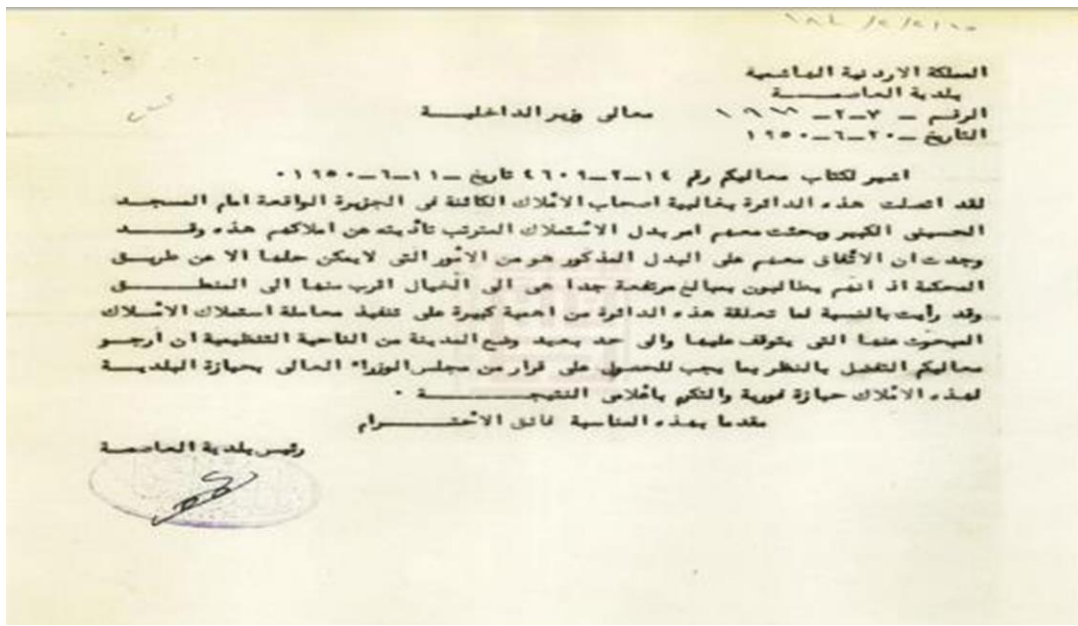 المملكة الاردنية الهاشمية
بلدية العاصمـــة
الرقم – ٧–٢– ١٩٦٦
معالي وزير الداخليـة
التاريخ – ٢٠–٦–١٩٥٠
اشير لكتاب معاليكم رقم ١٤–٢–٤٦٠٩ تاريخ – ١١–٦–١٩٥٠ ٠
لقد اتصلت هذه الدائرة بغالبية اصحاب الأملاك الكائنة في الجزيرة الواقعة امام المسجد
الحسيني الكبير وبحثت معهم امر بدل الاستملاك المترتب تأديته عن املاكهم هذه وقـــد
وجدت ان الاتفاق معهم على البدل المذكور هو من الأمور التي لايمكن حلها الا عن طريق
المحكمة اذ انهم يطالبون بمبالغ مرتفعة جدا هي الى الخيال اقرب منها الى المنطـــق
وقد رأيت بالنسبة لما تعلقة هذه الدائرة من اهمية كبيرة على تنفيذ معاملة استملاك الاملاك
المبحوث عنها التي يتوقف عليها والى حد بعيد وضع المدينة من الناحية التنظيمية ان ارجو
معاليكم التفضل بالنظر بما يجب للحصول على قرار من مجلس الوزراء العالي بحيازة البلديـة
لهذه الاملاك حيازة فورية والتكرم باعلامي النتيجـــة ٠
مقدما بهذه المناسبة فائق الاحتـــرام
رئيس بلدية العاصمة